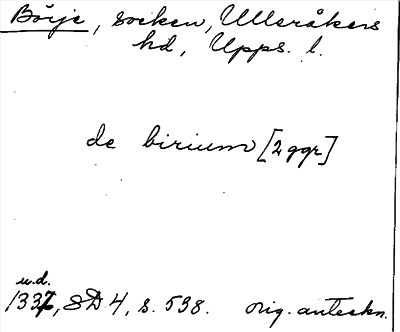 Börje, socken, Ulleråkers
hd, Upps. l.
de birium [2 ggr]
u.d.
1337, SD 4, s. 538. orig. anteckn.